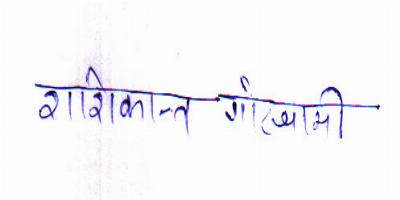 शशिकान्त गोस्वामी